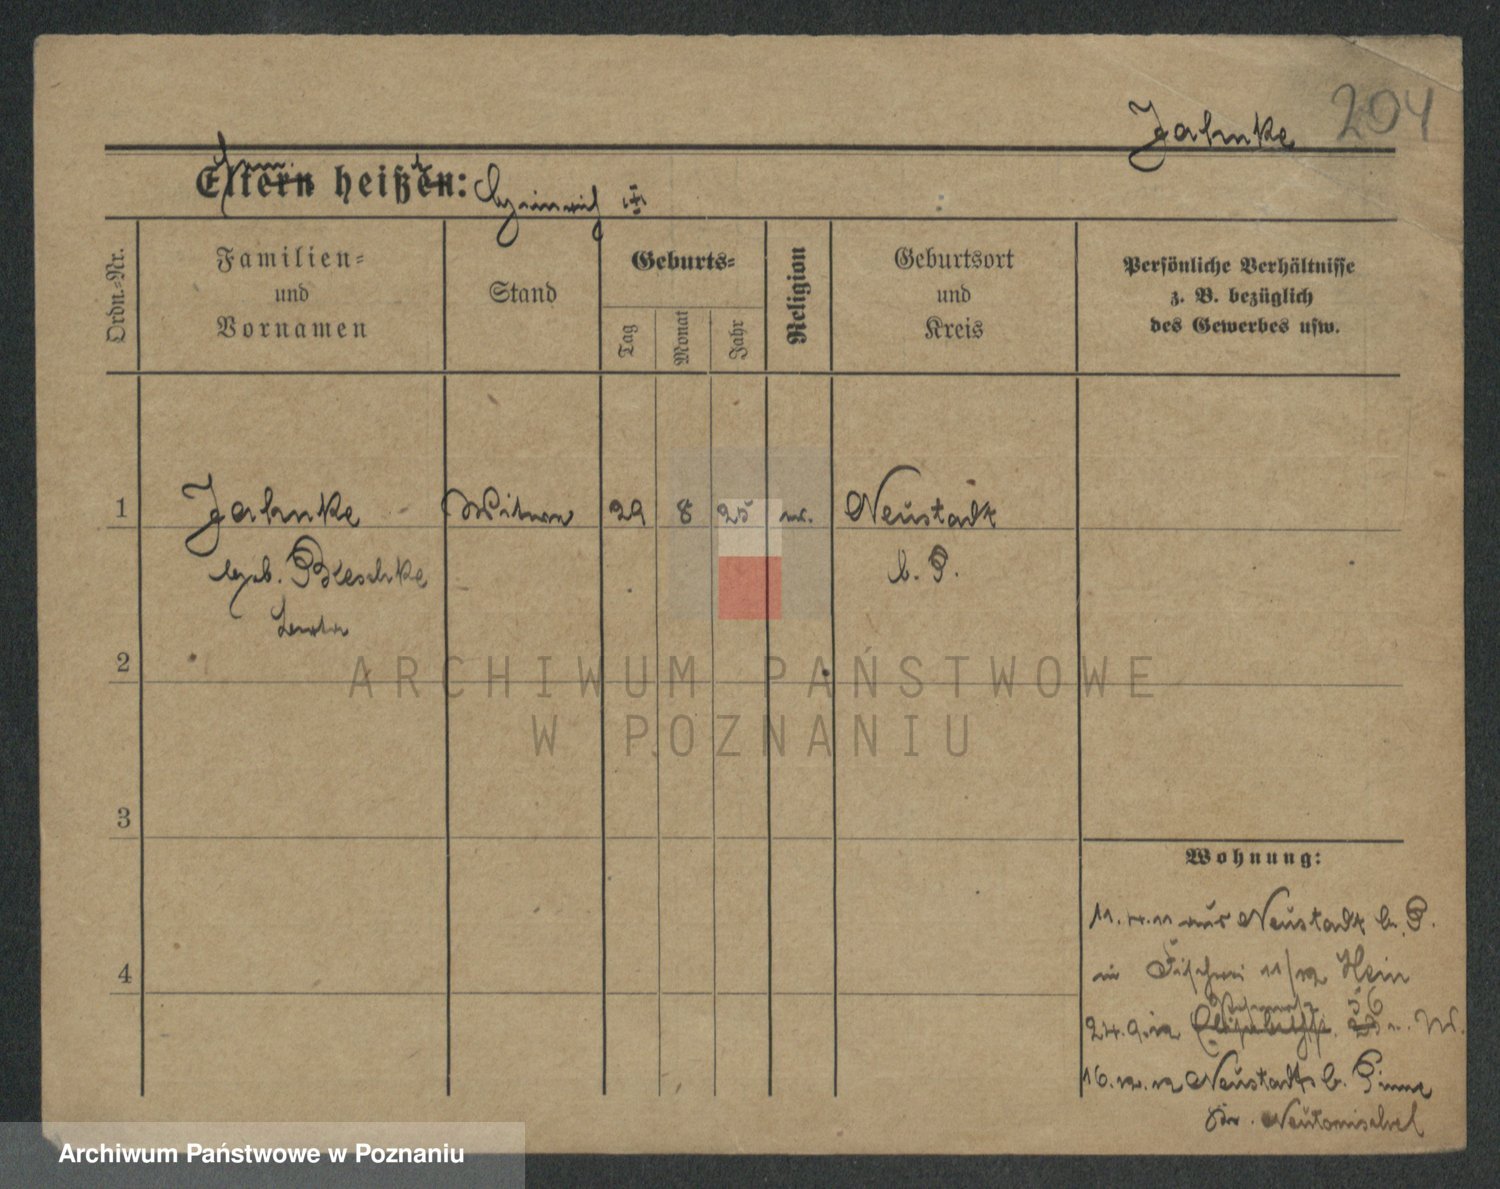 204
Jahnke
Eltern heißen: Heinrich
Ordn.-Nr.
Familien-
und
Vornamen
Stand
Geburts-
Tag
Monat
Jahr
Religion
Geburtsort
und
Kreis
Persönliche Verhältnisse
z. B. bezüglich
des Gewerbes usw.
1 Jahnke Witwe 29 8 25 Neustadt
geb. b. P.
2
ARCHIWUM PAŃSTWOWE
W POZNANIU
3
Wohnung:
11.4.11 aus Neustadt b. P.
in Fischerei 11/12 Hein
4
24.9.12
16.12.12 Neustadt b. Pinne
Kr. Neutomischel
Archiwum Państwowe w Poznaniu